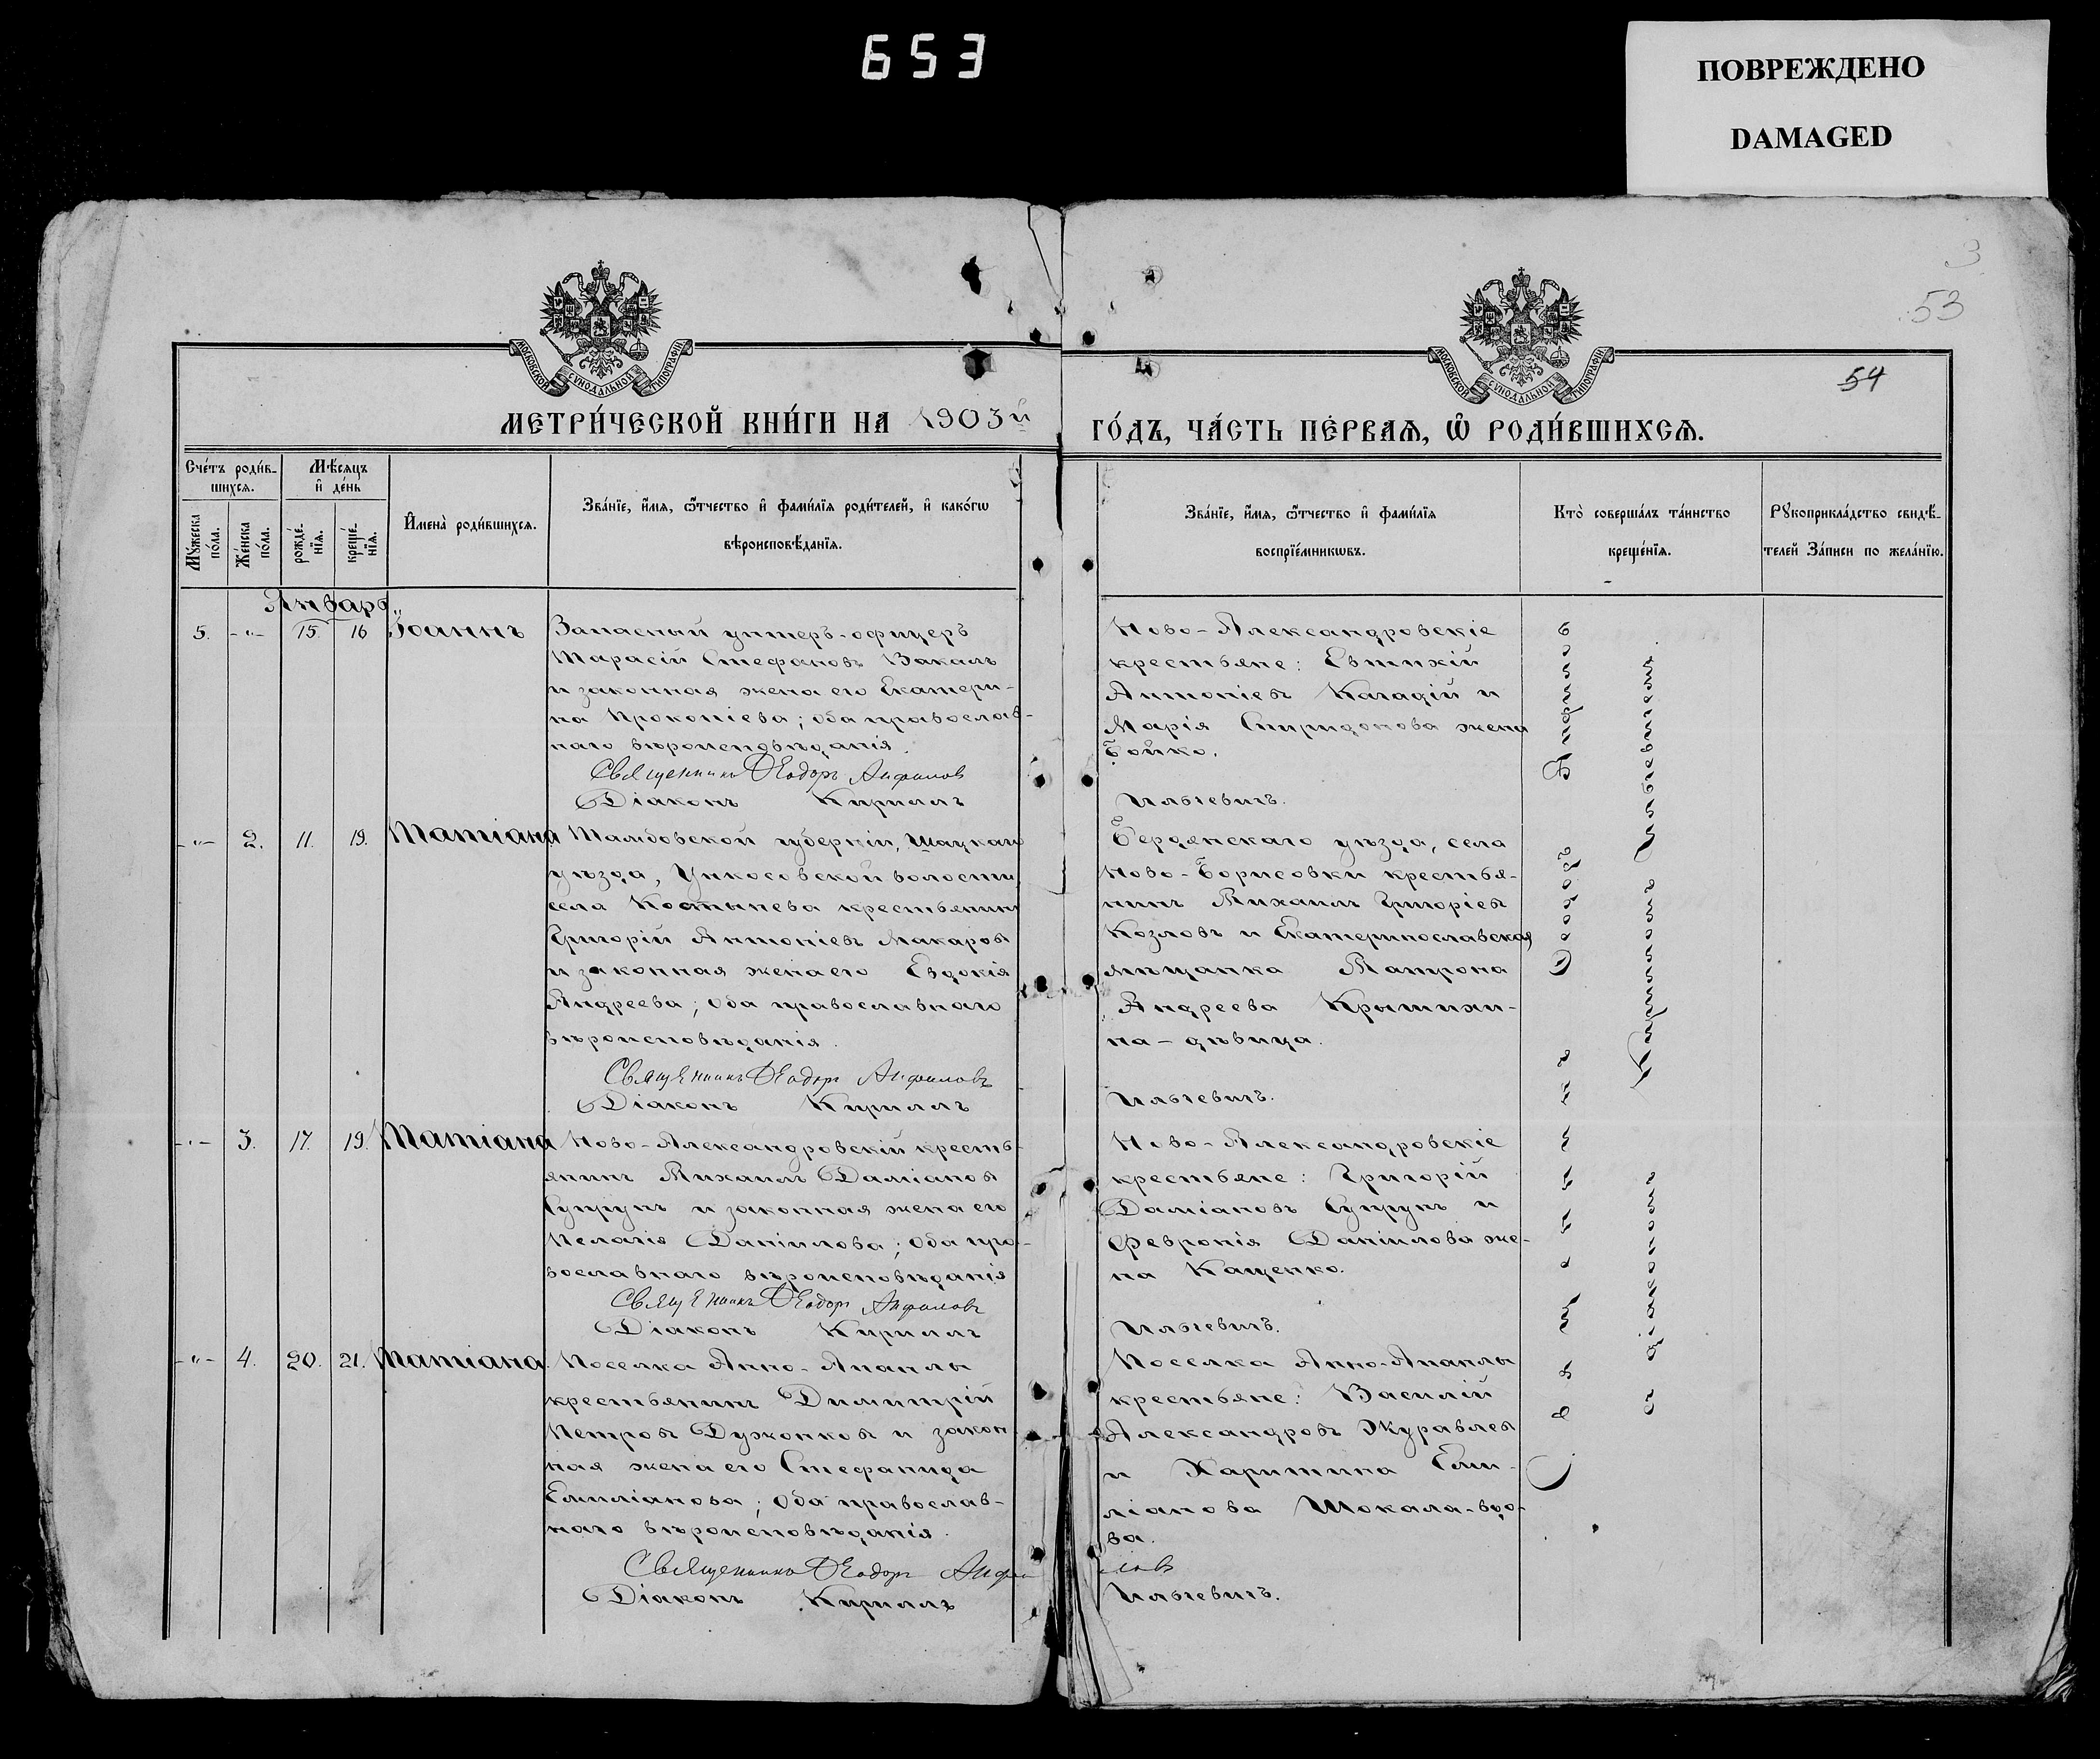 653
ПОВРЕЖДЕНО
DAMAGED
3
53
54
МОСКОВСКОЙ СѴНОДАЛЬНОЙ ТИПОГРАФІИ
МОСКОВСКОЙ СѴНОДАЛЬНОЙ ТИПОГРАФІИ
МЕТРИ́ЧЕСКОЙ КНИ́ГИ НА 1903й
ГО́ДЪ, ЧА́СТЬ ПЕ́РВАѦ, Ѡ҆ РОДИ́ВШИХСѦ.
Сче́тъ роди́в-
шихсѧ.
Мѣ́сяцъ
и҆ де́нь
Мꙋ́жеска
по́ла.
Же́нска
по́ла.
рожде́-
нїѧ.
креще́-
нїѧ.
И҆мена̀ роди́вшихсѧ.
Зва́нїе, и҆́мѧ, ѻ҆́тчество и҆ фамі́лїѧ роди́телей, и҆ како́гѡ
вѣроисповѣ́данїѧ.
Зва́нїе, и҆́мѧ, ѻ҆́тчество и҆ фамі́лїѧ
воспрїе́мникѡвъ.
Кто̀ соверша́лъ та́инство
креще́нїѧ.
Рꙋкоприкла́дство свидѣ́-
телей За́писи по жела́нїю.
Январь
5. -"- 15. 16 Іоаннъ
Запасный унтеръ-офицеръ
Тарасій Стефановъ Вакалъ
и законная жена его Екатери-
на Прокопіева; оба православ-
наго вѣроисповѣданія.
Священникъ Ѳеодоръ Анфиловъ
Діаконъ Кириллъ
Ново-Александровскіе
крестьяне: Евтихій
Антоніевъ Кагадій и
Марія Спиридонова жена
Бойко.
Ильчевичъ.
-"- 2. 11. 19. Татіана
Тамбовской губерніи, Шацкаго
уѣзда, Ункосовской волости
села Костынева крестьянинъ
Григорій Антоніевъ Макаровъ
и законная жена его Евдокія
Андреева; оба православнаго
вѣроисповѣданія.
Священникъ Ѳеодоръ Анфиловъ
Діаконъ Кириллъ
Бердянскаго уѣзда, села
Ново-Борисовки крестья-
нинъ Михаилъ Григоріевъ
Козловъ и Екатеринославская
мѣщанка Матрона
Андреева Крытихи-
на - дѣвица.
Ильчевичъ.
-"- 3. 17. 19. Татіана
Ново-Александровскій кресть-
янинъ Михаилъ Даміановъ
Супрунъ и законная жена его
Пелагія Даніилова; оба пра-
вославнаго вѣроисповѣданія
Священникъ Ѳеодоръ Анфиловъ
Діаконъ Кириллъ
Ново-Александровскіе
крестьяне: Григорій
Даміановъ Супрунъ и
Февронія Даніилова же-
на Кащенко.
Ильчевичъ.
-"- 4. 20. 21. Татіана.
Поселка Анно-Апанлы
крестьянинъ Димитрій
Петровъ Дужонковъ и закон-
ная жена его Стефанида
Емиліанова; оба православ-
наго вѣроисповѣданія.
Священникъ Ѳеодоръ Анфиловъ
Діаконъ Кириллъ
Поселка Анно-Апанлы
крестьяне: Василій
Александровъ Журавлевъ
и Харитина Еми-
ліанова Шокала-вдо-
ва.
Ильчевичъ.
Священникъ Ѳеодоръ Анфиловъ
съ діакономъ Кирилломъ Ильчевичемъ.